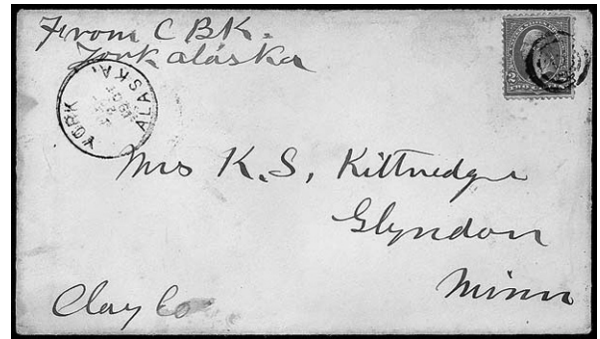 From C BK.
York alaska
YORK ALASKA.
Mrs K. S. Kittredge
Glyndon
Minn
Clay Co